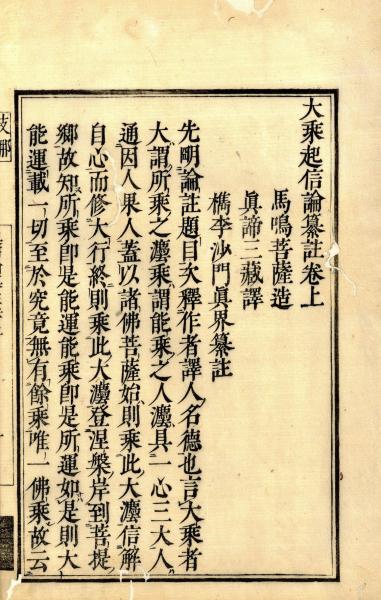 大乘起信論纂註卷上
馬鳴菩薩造
眞諦三藏譯
檇李沙門眞界纂註
先明論註題目次釋作者譯人名德也言大乘者
大謂所乘之灋乘謂能乘之人灋具一心三大人
通因人果人蓋以諸佛菩薩始則乘此大灋信解
自心而修大行終則乘此大灋登涅槃岸到菩提
鄉故知所乘即是能運能乘即是所運如是則大
能運載一切至於究竟無有餘乘唯一佛乘故云